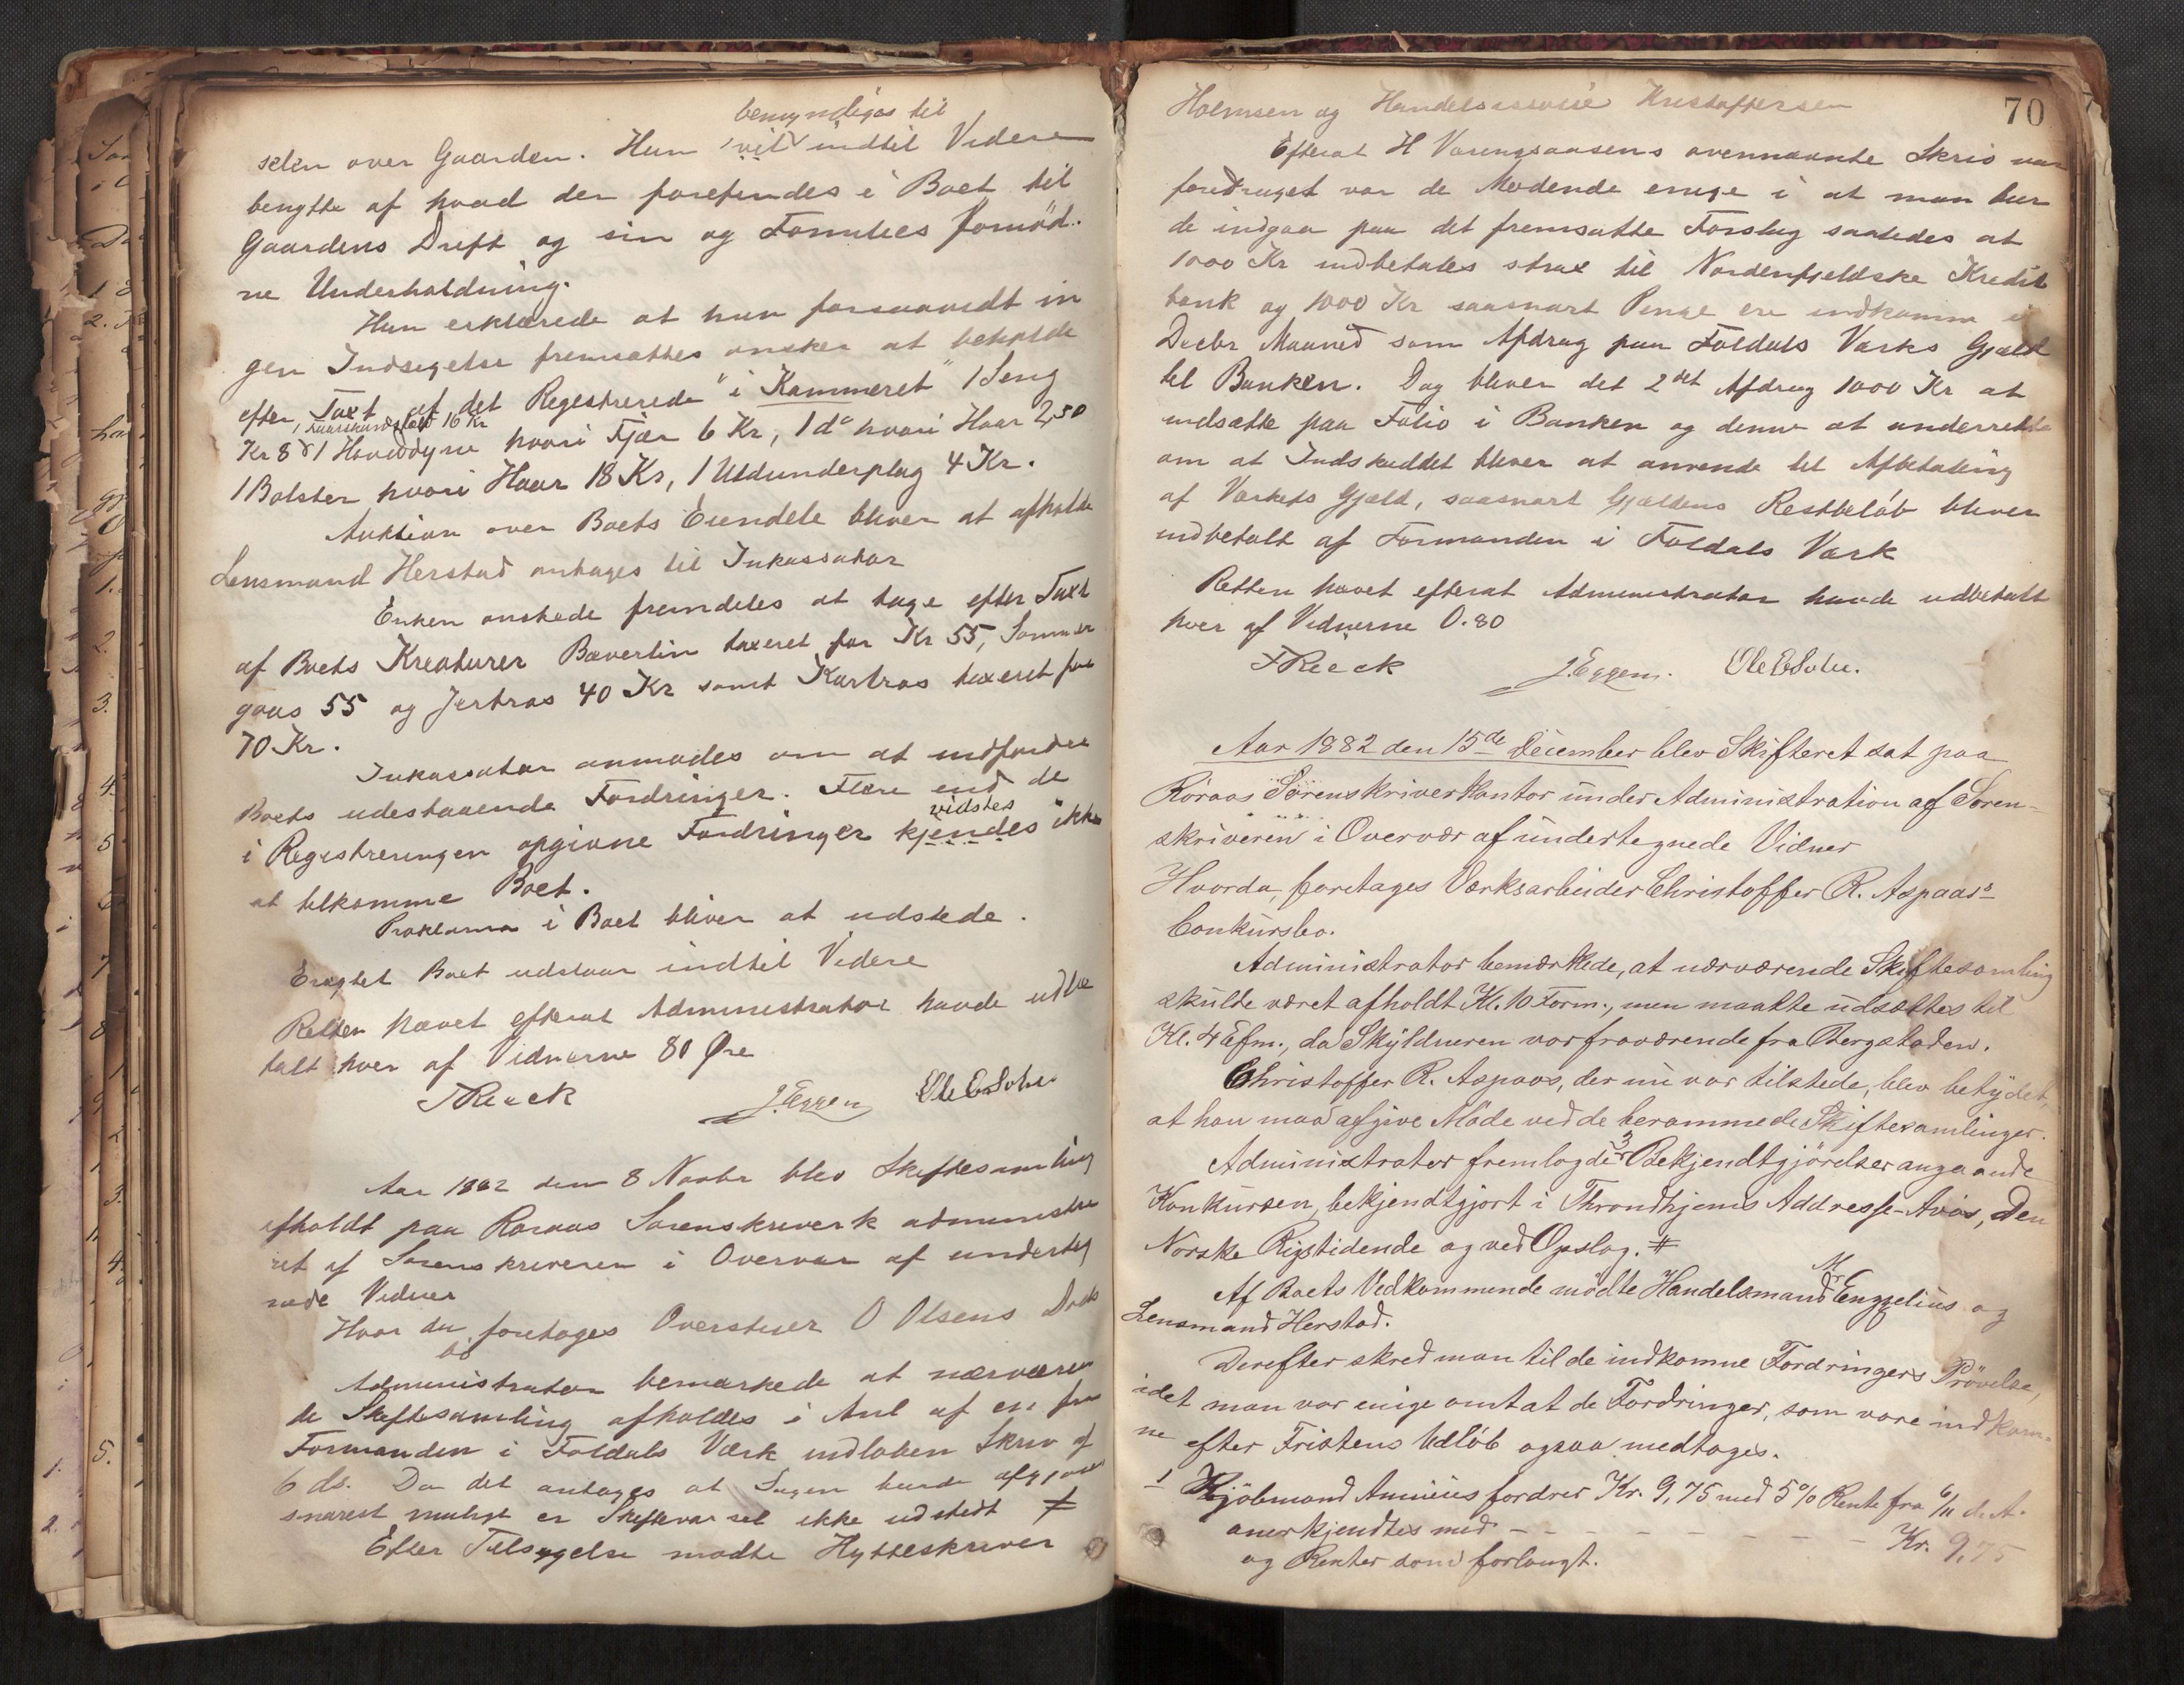 benyndiges til
selin over Gaarden. Hun vil indtil Videre
benytte af hvad der forefindes i Boet til
Gaardens Drift og sin og Families fornöd-
ne Underholdning.
Hun erklærede at hun forsaavidt in
gen Indsigelse fremsættes ønsker at beholde
efter Taxt af det Registrerede "i Kammeret" 1 Seng
, haarskindsfeld 16 Kr
Kr 8 1 Hoveddyne hvori Fjær 6 Kr, 1 do hvori Haar 2,50
1 Bolster hvori Haar 18 Kr, 1 Uldunderplag 4 Kr.
Auktion over Boets Eiendele bliver at afholde
Lensmand Herstad antages til Inkassator
Enken ønskede fremdeles at tage efter Taxt
af Boets Kreaturer Bæverlin taxeret for Kr 55, Sommer
gaas 55 og Jertros 40 Kr samt Kartros taxeret for
70 Kr.
Inkassator anmodes om at indfordre
Boets udestaaende Fordringer. Flere end de
vidstes
i Registreringen opgivne Fordringer kjendes ikke
at tilkomme Boet.
Proklama i Boet bliver at udstede.
Eragtet Boet udstaar indtil Videre
Retten hævet efterat Administrator havde udbe
talt hver af Vidnerne 80 Øre
TReeck J. Eggen Ole E Solie
Aar 1882 den 8 Novbr blev Skiftesamling
afholdt paa Røraas Sorenskriverk administre
ret af Sorenskriveren i Overvær af underteg
nede Vidner
Hvor da foretages Overstiger O Olsens Døds
bo
Administrator bemærkede at nærværen
de Skiftesamling afholdes i Anl af en fra
Formanden i Foldals Værk indløben Skriv af
6 ds. Da det antages at Sagen burde afgjøres
snarest muligt er Skiftevarsel ikke udstedt ≠
Efter Tilsigelse mødte Hytteskriver
70
Holmsen og Handelsassosié Kristoffersen
Efterat H Vorengaasens ovennævnte Skriv var
foredraget var de Mødende enige i at man bur
de indgaa paa det fremsatte Forslag saaledes at
1000 Kr indbetales strax til Nordenfjeldske Kredit
bank og 1000 Kr saasnart Penge ere indkomne i
Decbr Maaned som Afdrag paa Foldals Værks Gjæld
til Banken. Dog bliver det 2det Afdrag 1000 Kr at
indsætte paa Folio i Banken og denne at underrette
om at Indskuddet bliver at anvende til Afbetaling
af Værkets Gjæld, saasnart Gjældens Restbeløb bliver
indbetalt af Formanden i Foldals Værk
Retten hævet efterat Administrator havde udbetalt
hver af Vidnerne 0.80
TReeck J. Eggen. Ole E Solie.
Aar 1882 den 15de December blev Skifteret sat paa
Röraas Sörenskriverkontor under Administration af Soren-
skriveren i Overvær af undertegnede Vidner
Hvorda foretages Værksarbeider Christoffer R. Aspaas's
Conkursbo.
Administrator bemærkede, at nærværende Skiftesamling
skulde været afholdt Kl. 10 Form., men maatte udsættes til
Kl. 4 Efm., da Skyldneren var fraværende fra Bergstaden.
Christoffer R. Aspaas, der nu var tilstede, blev betydet,
at han maa afgive Möde ved de berammede Skiftesamlinger.
Administrator fremlagde 3 Bekjendtgjörelser angaaende
Konkursen, bekjendtgjort i Throndhjems Addresse-Avis, Den
Norske Rigstidende og ved Opslag. #
Af Boets Vedkommende mödte Handelsmand M Engzelius og
Lensmand Herstad.
Derefter skred man til de indkomne Fordringers Prövelse,
idet man var enige om at de Fordringer, som vare indkom-
ne efter Fristens Udlöb ogsaa medtages.
1 Kjöbmand Amnéus fordrer Kr. 9,75 med 5% Rente fra 6/11 d. A.
anerkjendtes med - - - - - - - - Kr. 9,75
og Renter som forlangt.